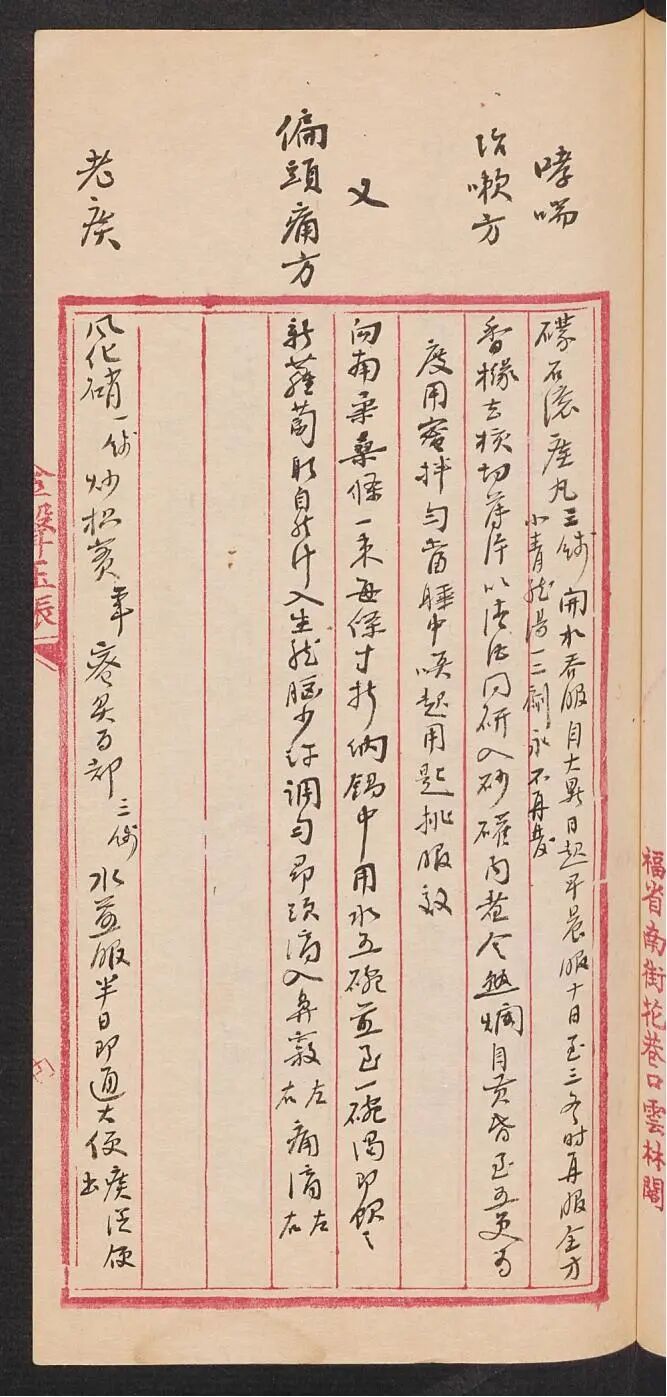 福省南街花巷口雲林閣
哮喘
礞石滾痰丸三錢開水吞服自大暑日起早晨服十日至三冬時再服全方
小青龍湯一二劑永不再發
治嗽方
香櫞去核切薄片以清酒同研入砂礶內煮令熟爛自黃昏至五更為
度用蜜拌勻當睡中喚起用匙挑服效
又
向南柔桑條一束每條寸折納鍋中用水五碗煎至一碗渴即飲之
偏頭痛方
新蘿蔔取自然汁入生龍腦少許調勻昂頭滴入鼻竅左右痛滴左右
老痰
風化硝一錢炒枳實蜜炙百部三錢水煎服半日即通大便痰從便出
金聲玉振